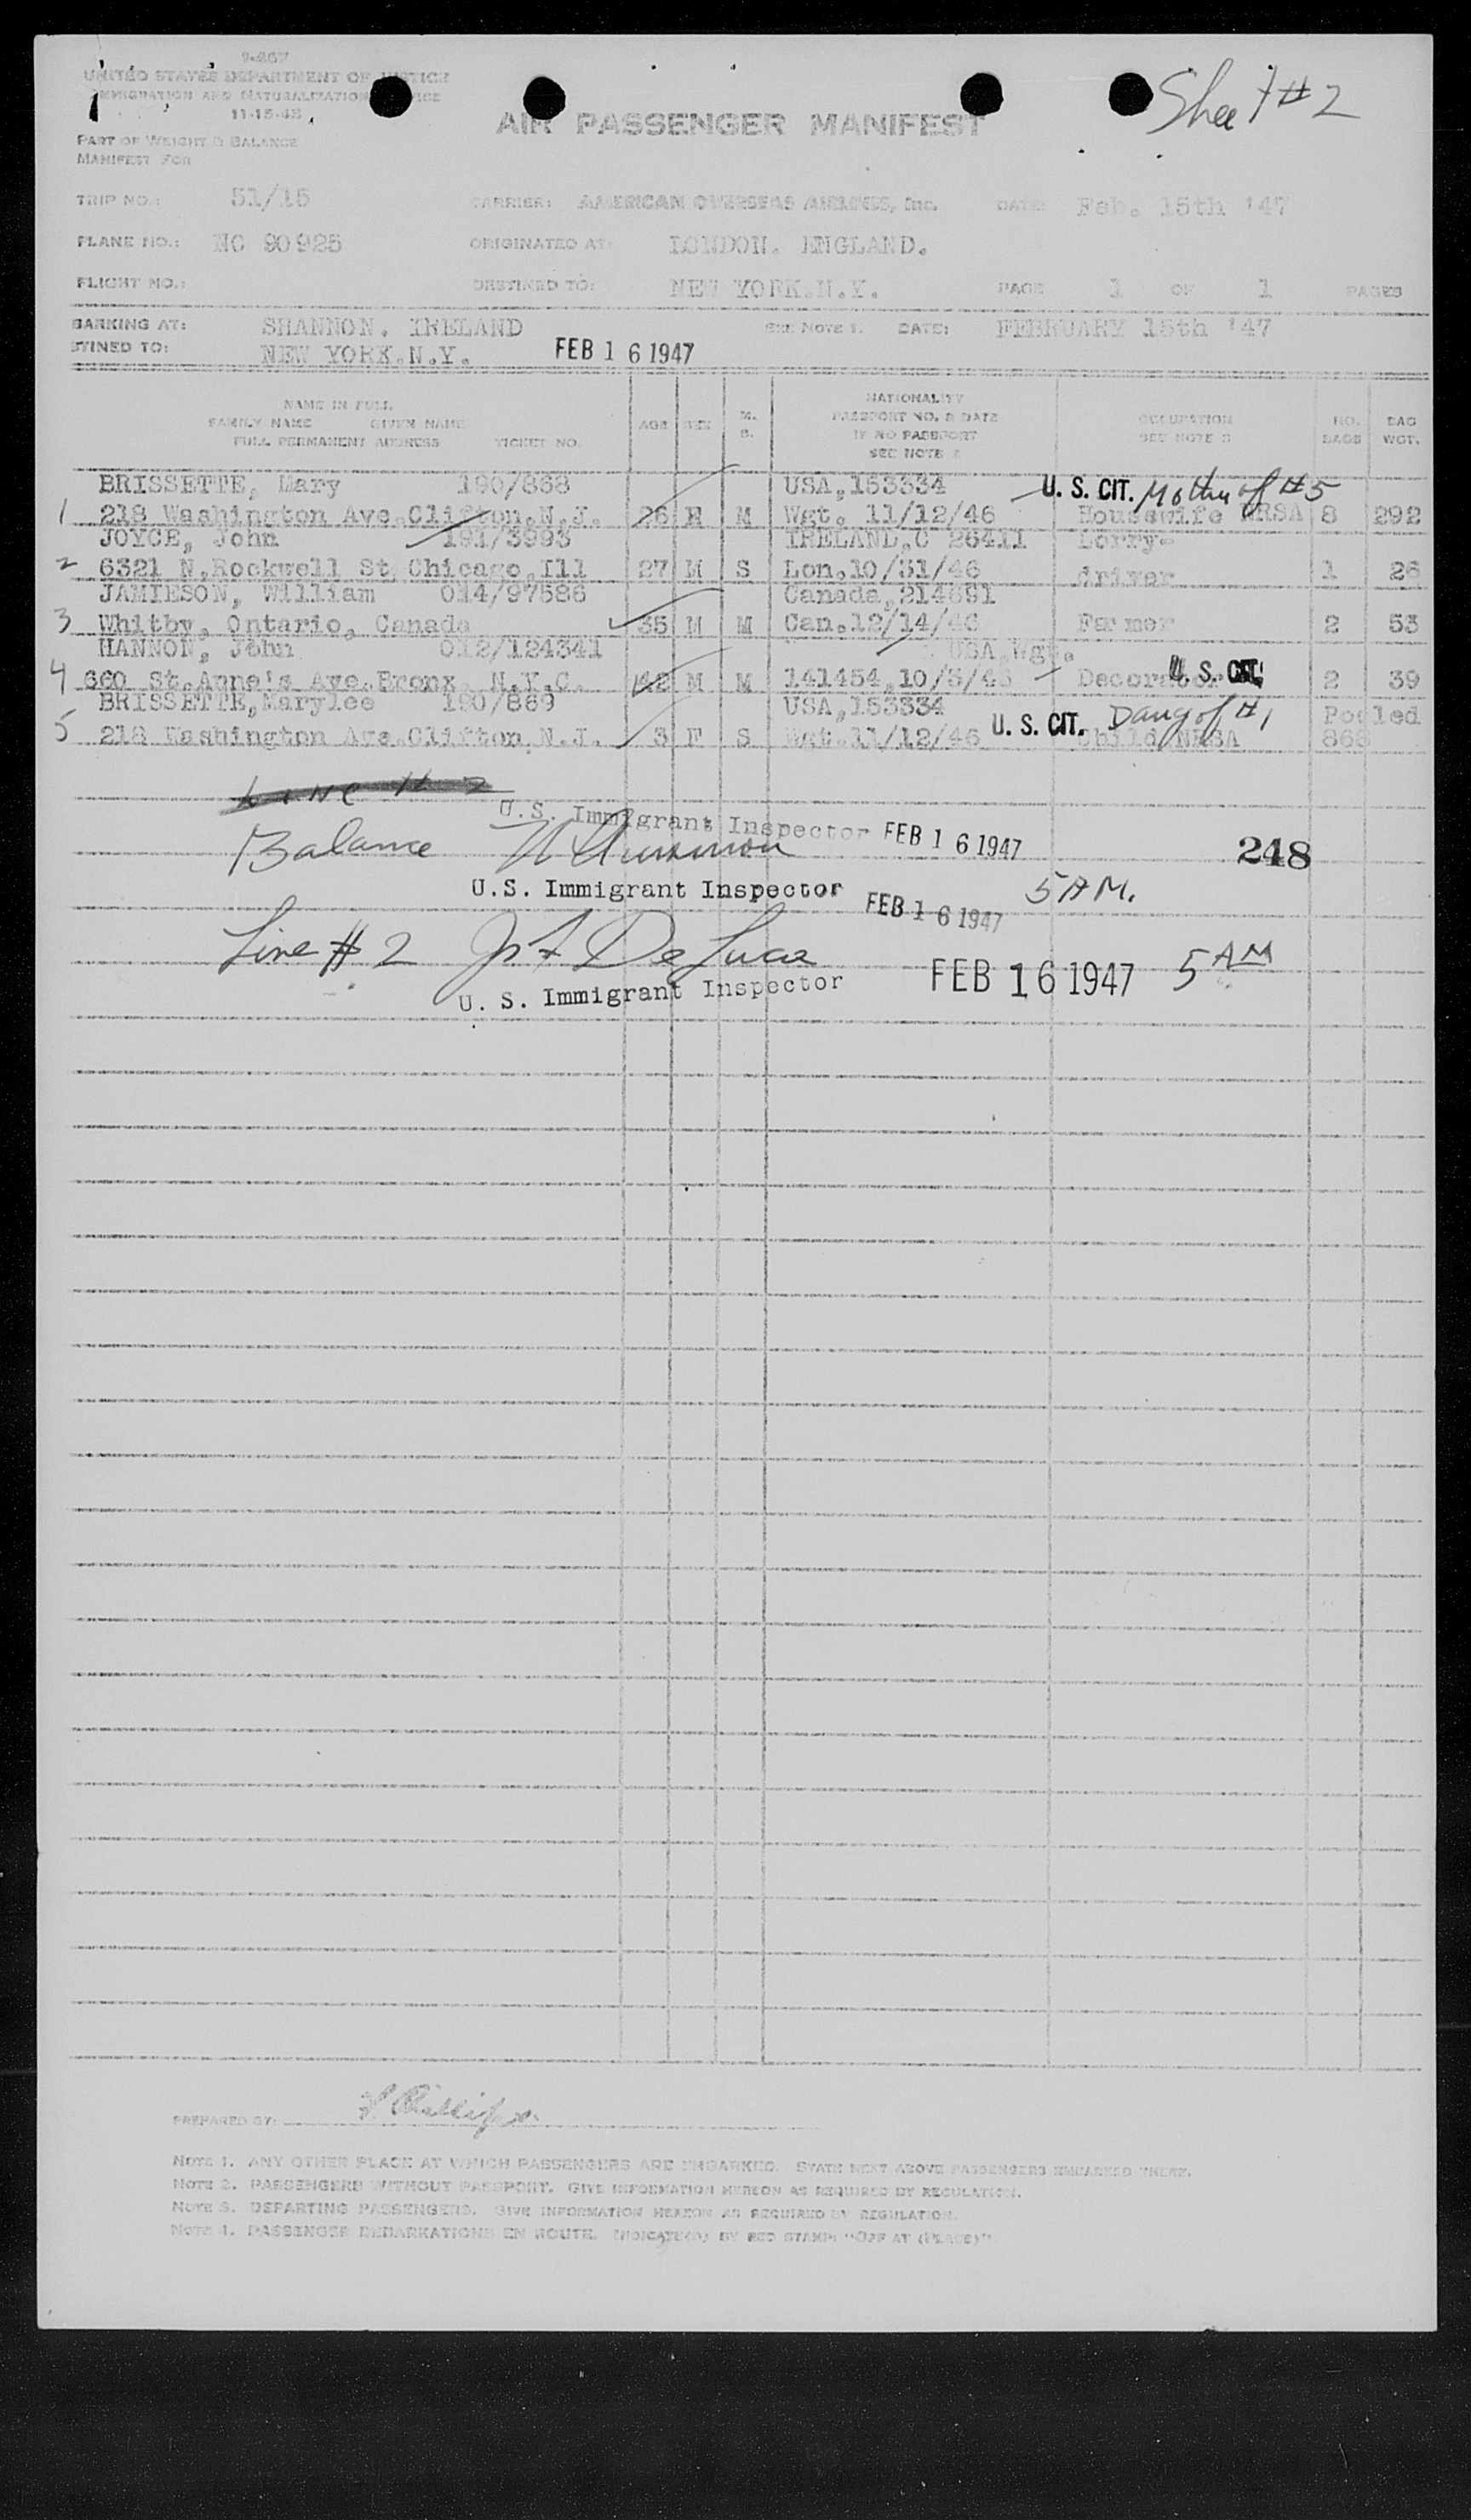 9-267
UNITED STATES DEPARTMENT OF JUSTICE
IMMIGRATION AND NATURALIZATION SERVICE
11-15-45
Sheet #2
AIR PASSENGER MANIFEST
PART OF WEIGHT & BALANCE
MANIFEST FOR
TRIP NO.: 51/15 CARRIER: AMERICAN OVERSEAS AIRLINES, Inc. DATE: Feb. 15th '47
PLANE NO.: NC 90925 ORIGINATED AT: LONDON. ENGLAND.
FLIGHT NO.: DESTINED TO: NEW YORK.N.Y. PAGE 1 OF 1 PAGES
BARKING AT: SHANNON. IRELAND SEE NOTE 1. DATE: FEBRUARY 15th '47
STINED TO: NEW YORK.N.Y. FEB 16 1947
NAME IN FULL
FAMILY NAME GIVEN NAME
FULL PERMANENT ADDRESS TICKET NO. AGE SEX M. S. NATIONALITY PASSPORT NO. & DATE IF NO PASSPORT SEE NOTE 2 OCCUPATION SEE NOTE 3 NO. BAGS BAG WGT.
BRISSETTE, Mary 190/868 USA,153334 U. S. CIT. Mother of #5
1 218 Washington Ave.Clifton.N.J. 26 F M Wgt. 11/12/46 Housewife NRSA 8 292
JOYCE, John 191/3993 IRELAND,C 26411 Lorry-
2 6321 N.Rockwell St Chicago,Ill 27 M S Lon.10/31/46 driver 1 26
JAMIESON, William 014/97586 Canada,214691
3 Whitby, Ontario, Canada 35 M M Can.12/14/46 Farmer 2 53
HANNON, John 012/124341 USA,Wgt.
4 660 St.Anne's Ave.Bronx N.Y.C. 42 M M 141454,10/3/46 Decorator U. S. CIT. 2 39
BRISSETTE,Marylee 190/869 USA,153334 U. S. CIT. Daug of #1 Pooled
5 218 Washington Ave.Clifton,N.J. 3 F S Wgt.11/12/46 Child NRSA 868
Line # 2
U.S. Immigrant Inspector FEB 16 1947
Balance 248
U.S. Immigrant Inspector FEB 16 1947 5 AM.
Line # 2 De Luca
U. S. Immigrant Inspector FEB 16 1947 5 AM
PREPARED BY:
NOTE 1. ANY OTHER PLACE AT WHICH PASSENGERS ARE EMBARKED. STATE NEXT ABOVE PASSENGERS EMBARKED THERE.
NOTE 2. PASSENGERS WITHOUT PASSPORT. GIVE INFORMATION HEREON AS REQUIRED BY REGULATION.
NOTE 3. DEPARTING PASSENGERS. GIVE INFORMATION HEREON AS REQUIRED BY REGULATION.
NOTE 4. PASSENGER DEBARKATIONS EN ROUTE. INDICATE(D) BY RED STAMP: "OFF AT (PLACE)"